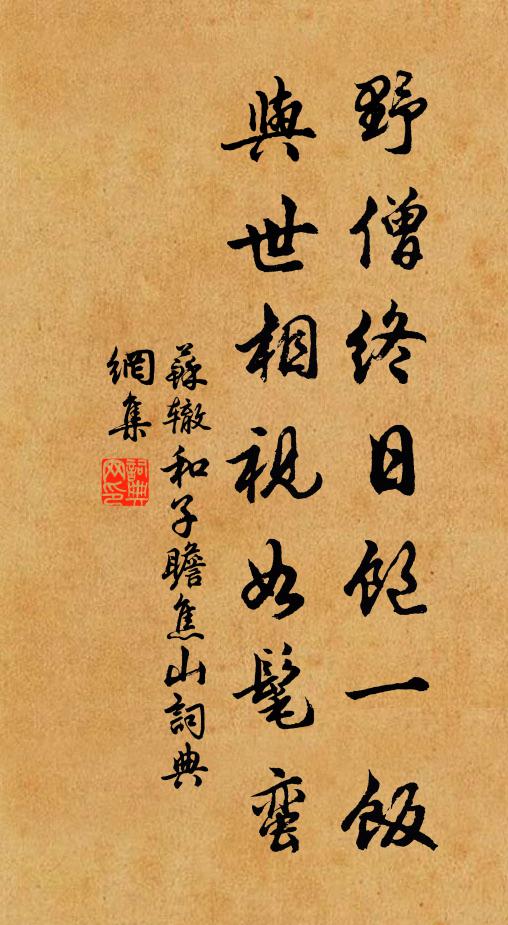 野僧終日飽一飯
與世相視如髦蛮
蘇辙和子瞻焦山詞典
網集
詞典網印